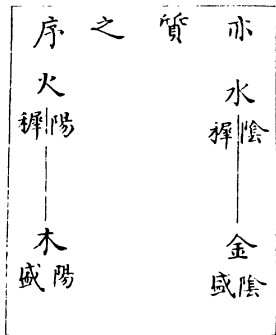 亦質之序
水
陰穉
金
陰盛
火
陽穉
木
陽盛